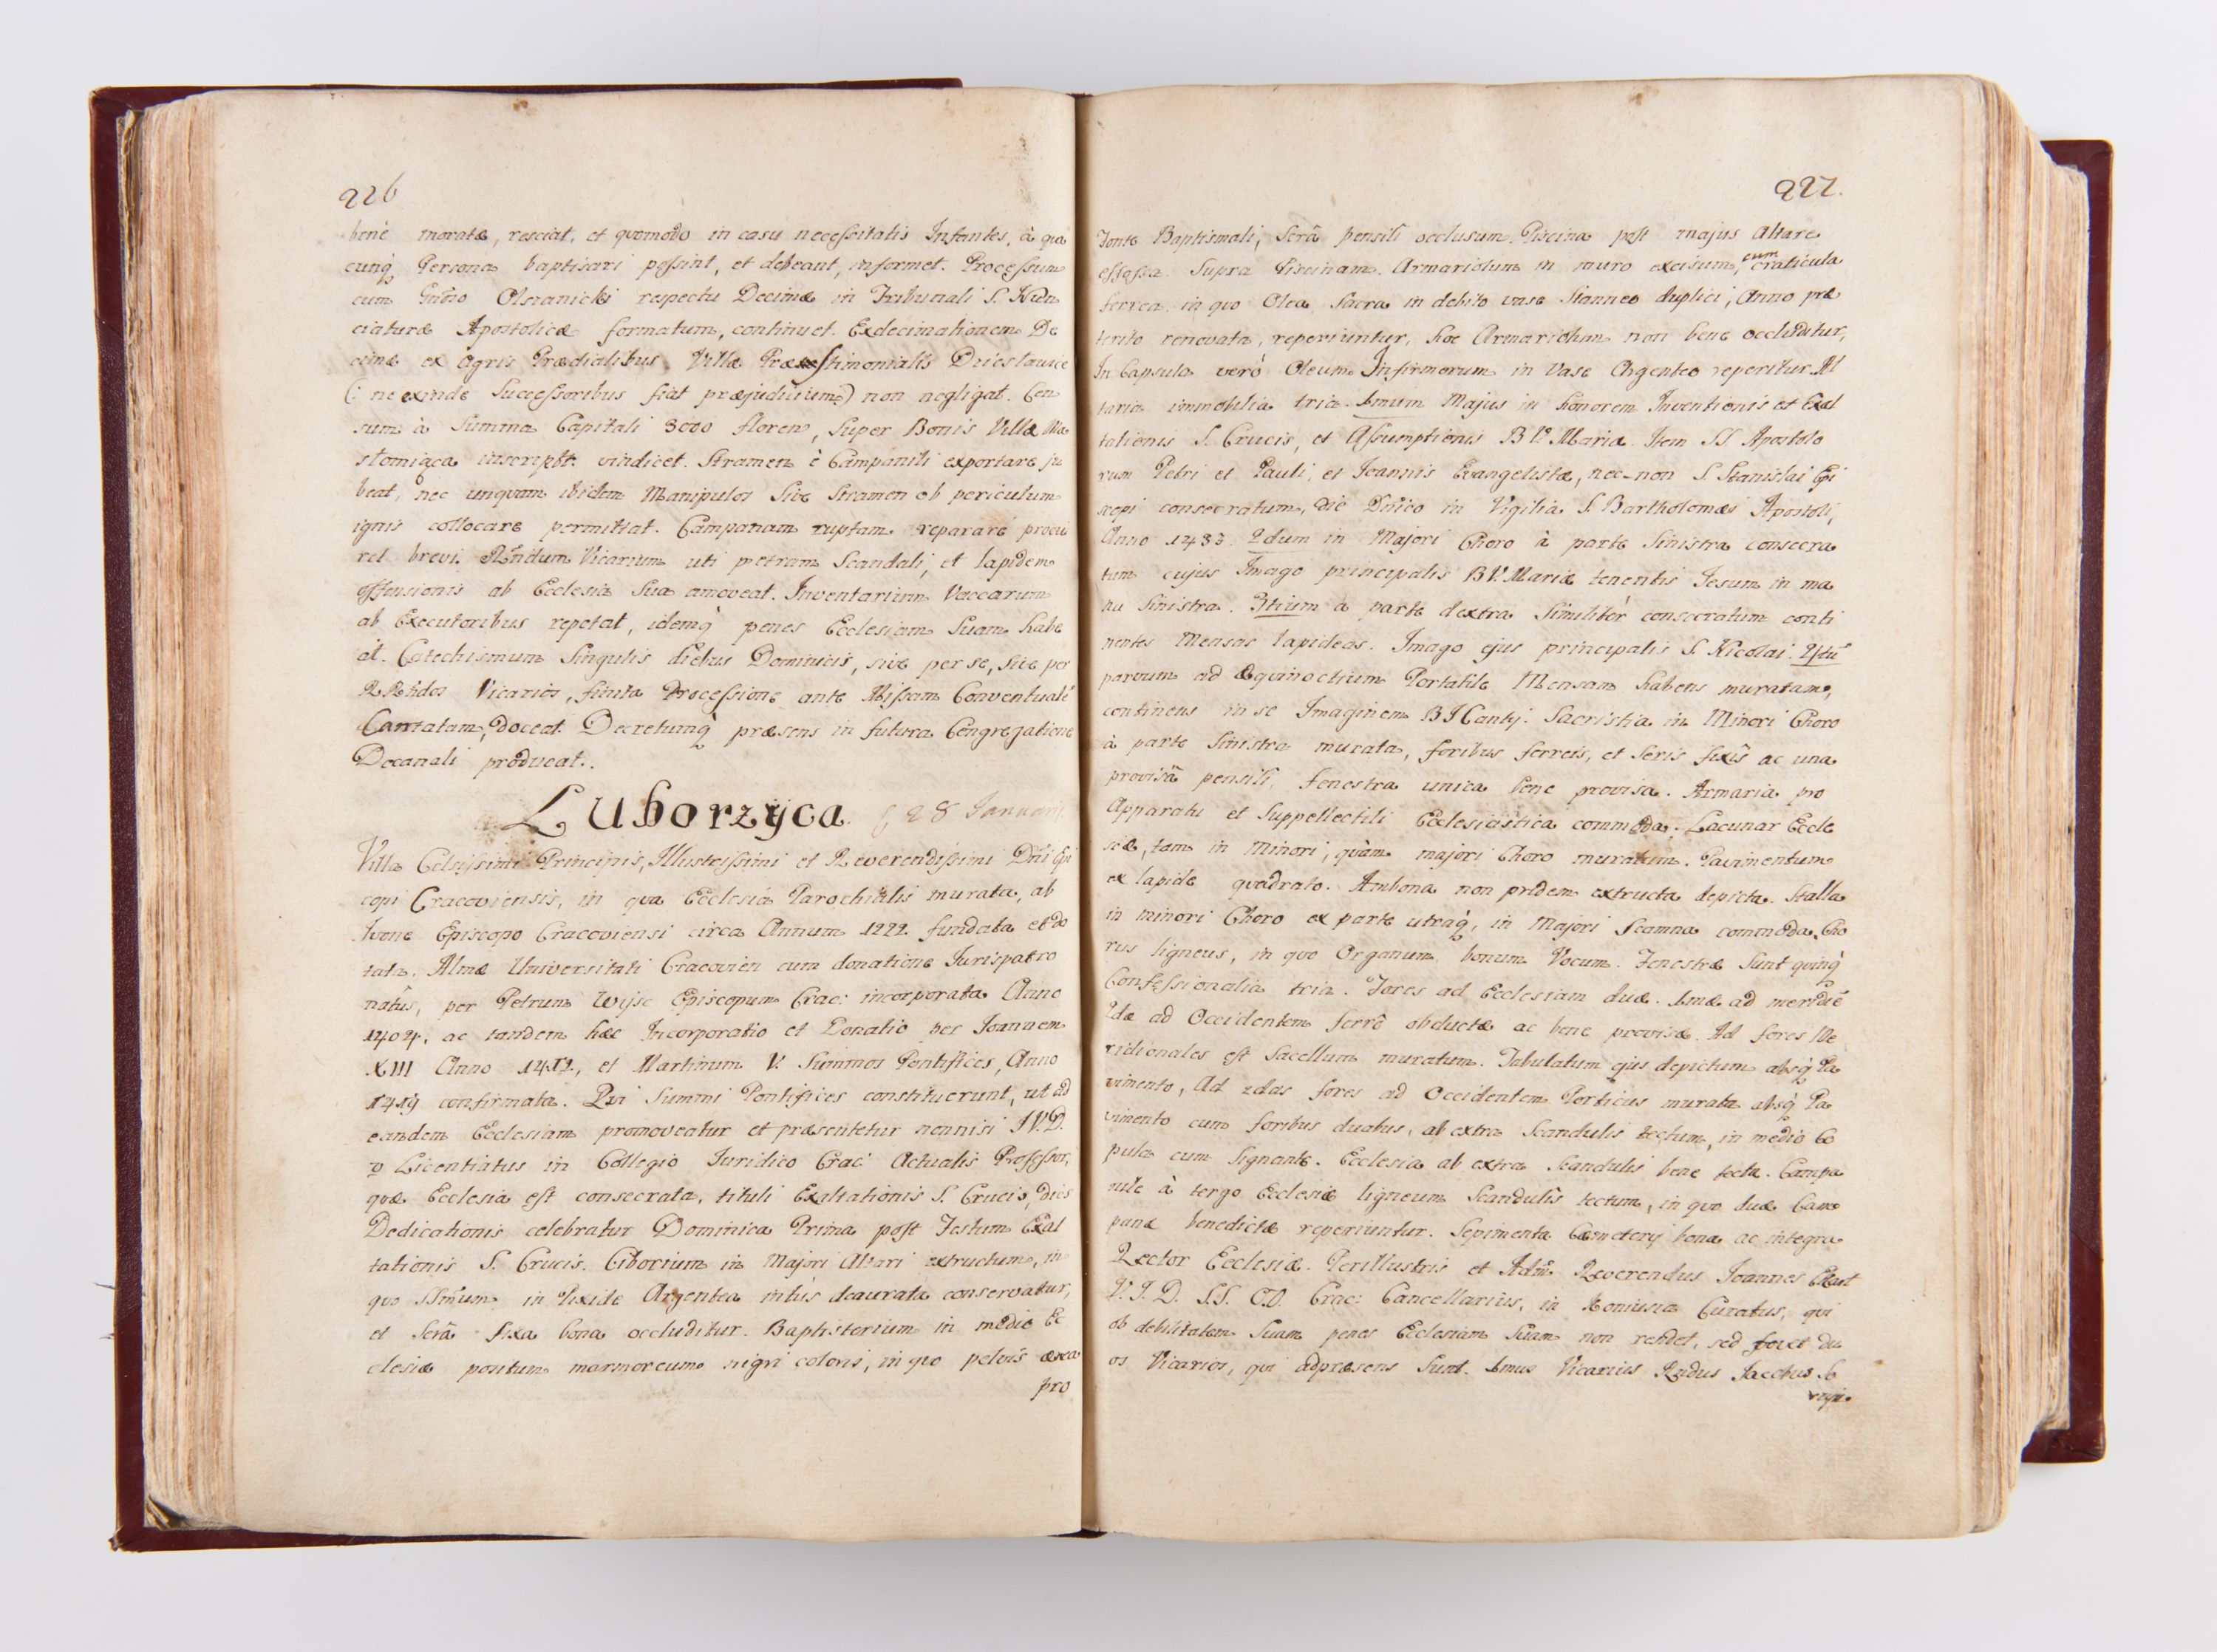 226
bené moratæ, resciat, et quomodo in casu necessitatis Infantes, à qua
cunq́ Persona baptisari possint, et debeant, informet. Processum
cum Oleranicki respectu Decimæ in Tribunali S. Nun
ciaturæ Apostolicæ formatum, continuet. Exdecimationem De
cimæ ex Agris Prædialibus Villæ Præstimonialis
(: ne exinde Successoribus fiat præjudicium) non negligat. Cen
sum à Summa Capitali 3000 floren, Super Bonis Villæ
inscript. vindicet. Stramen è Campanili exportare ju
beat, nec unquam ibidem Manipulos Sive Stramen ob periculum
ignis collocare permittat. Campanam ruptam reparare procu
ret brevi. Rñdum Vicarium uti petram Scandali, et lapidem
offensionis ab Ecclesia Sua amoveat. Inventarium Vaccarum
ab Executoribus repetat, idemq́ penes Ecclesiam Suam habe
at. Catechismum Singulis diebus Dominicis, sive per se, sive per
RRñdos Vicarios, finita Processione ante Missam Conventualē
Cantatam, doceat. Decretumq́ præsens in futura Congregatione
Decanali producat.
Luborzyca 28 Januarij
Villa Celsissimi Principis, Illustrissimi et Reverendissimi Dñi Epi
copi Cracoviensis, in qua Ecclesia Parochialis murata, ab
Ivone Episcopo Cracoviensi circa Annum 1222 fundata et do
tata. Almæ Universitati Cracovien cum donatione Jurispatro
natûs, per Petrum Wijsc Episcopum Crac: incorporata Anno
1404, ac tandem hæc Incorporatio et Donatio per Joannem
XIII Anno 1412, et Martinum V. Summos Pontifices, Anno
1419 confirmata. Qui Summi Pontifices constituerunt, ut ad
eandem Ecclesiam promoveatur et præsentetur nonnisi J.V.D.
Licentiatus in Collegio Juridico Crac: Actualis Professor,
quæ Ecclesia est consecrata, tituli Exaltationis S. Crucis, dies
Dedicationis celebratur Dominica Prima post Festum Exal
tationis S. Crucis. Ciborium in Majori Altari extructum, in
quo SSmum in Pixide Argentea intùs deaurata conservatur,
et Serâ fixa bona occluditur. Baptisterium in medio Ec
clesiæ positum marmoreum nigri coloris, in quo pelvis ærea
pro
227.
Fonte Baptismali, Serâ pensili occlusum. Piscina post majus Altare
effossa. Supra Piscinam Armariolum in muro excisum, cum craticula
ferrea in quo Olea Sacra in debito vase Stanneo duplici, Anno præ
terito renovata, reperiuntur, hoc Armariolum non bene occluditur,
In Capsula verò Oleum Infirmorum in Vase Argenteo reperitur. Al
taria immobilia tria. 1mum Majus in honorem Inventionis et Exal
tationis S. Crucis, et Assumptionis B V. Mariæ. Item SS Apostolo
rum Petri et Pauli, et Joannis Evangelistæ, nec-non S. Stanislai Epi
scopi consecratum, die Dñico in Vigilia S. Bartholomæi Apostoli,
Anno 2dum in Majori Choro à parte Sinistra consecra
tum cujus Imago principalis B V. Mariæ tenentis Jesum in ma
nu Sinistra. 3tium à parte dextra Similiter consecratum conti
nentes Mensas lapideas. Imago ejus principalis S. Nicolai. 4tū
parvum ad Æquinoctium Portatile Mensam habens muratam,
continens in se Imaginem B J Cantij. Sacristia in Minori Choro
à parte Sinistra murata, foribus ferreis, et Seris fixîs ac una
provisâ pensili, fenestra unica bene provisa. Armaria pro
Apparatu et Suppellectili Ecclesiastica commoda. Lacunar Eccle
siæ, tam in Minori, quàm majori Choro muratum. Pavimentum
ex lapide quadrato. Ambona non pridem extructa depicta. Stalla
in minori Choro ex parte utraq́, in Majori Scamna commoda, Cho
rus ligneus, in quo Organum bonum Vocum. Fenestræ Sunt quinq́
Confessionalia tria. Fores ad Ecclesiam duæ. 1mæ ad meridiē
2dæ ad Occidentem ferrô obductæ ac bene provisæ. Ad fores Me
ridionales est Sacellum muratum. Tabulatum ejus depictum absq́ Pa
vimento, Ad 2das fores ad Occidentem Porticus murata absq́ Pa
vimento cum foribus duabus, ab extra Scandulis tectum, in medio Co
pula cum Signante. Ecclesia ab extra Scandulis bene tecta. Campa
nile à tergo Ecclesiæ ligneum Scandulis tectum, in quo duæ Cam
panæ benedictæ reperiuntur. Sepimenta Cæmeterij bona ac integra
Rector Ecclesiæ Perillustris et Adm̄ Reverendus Joannes
V. J. D. S.S. C.D. Crac: Cancellarius, in Koniusza Curatus, qui
ob debilitatem Suam penes Ecclesiam Suam non residet, sed fovet du
os Vicarios, qui adpræsens Sunt. 1mus Vicarius Rñdus